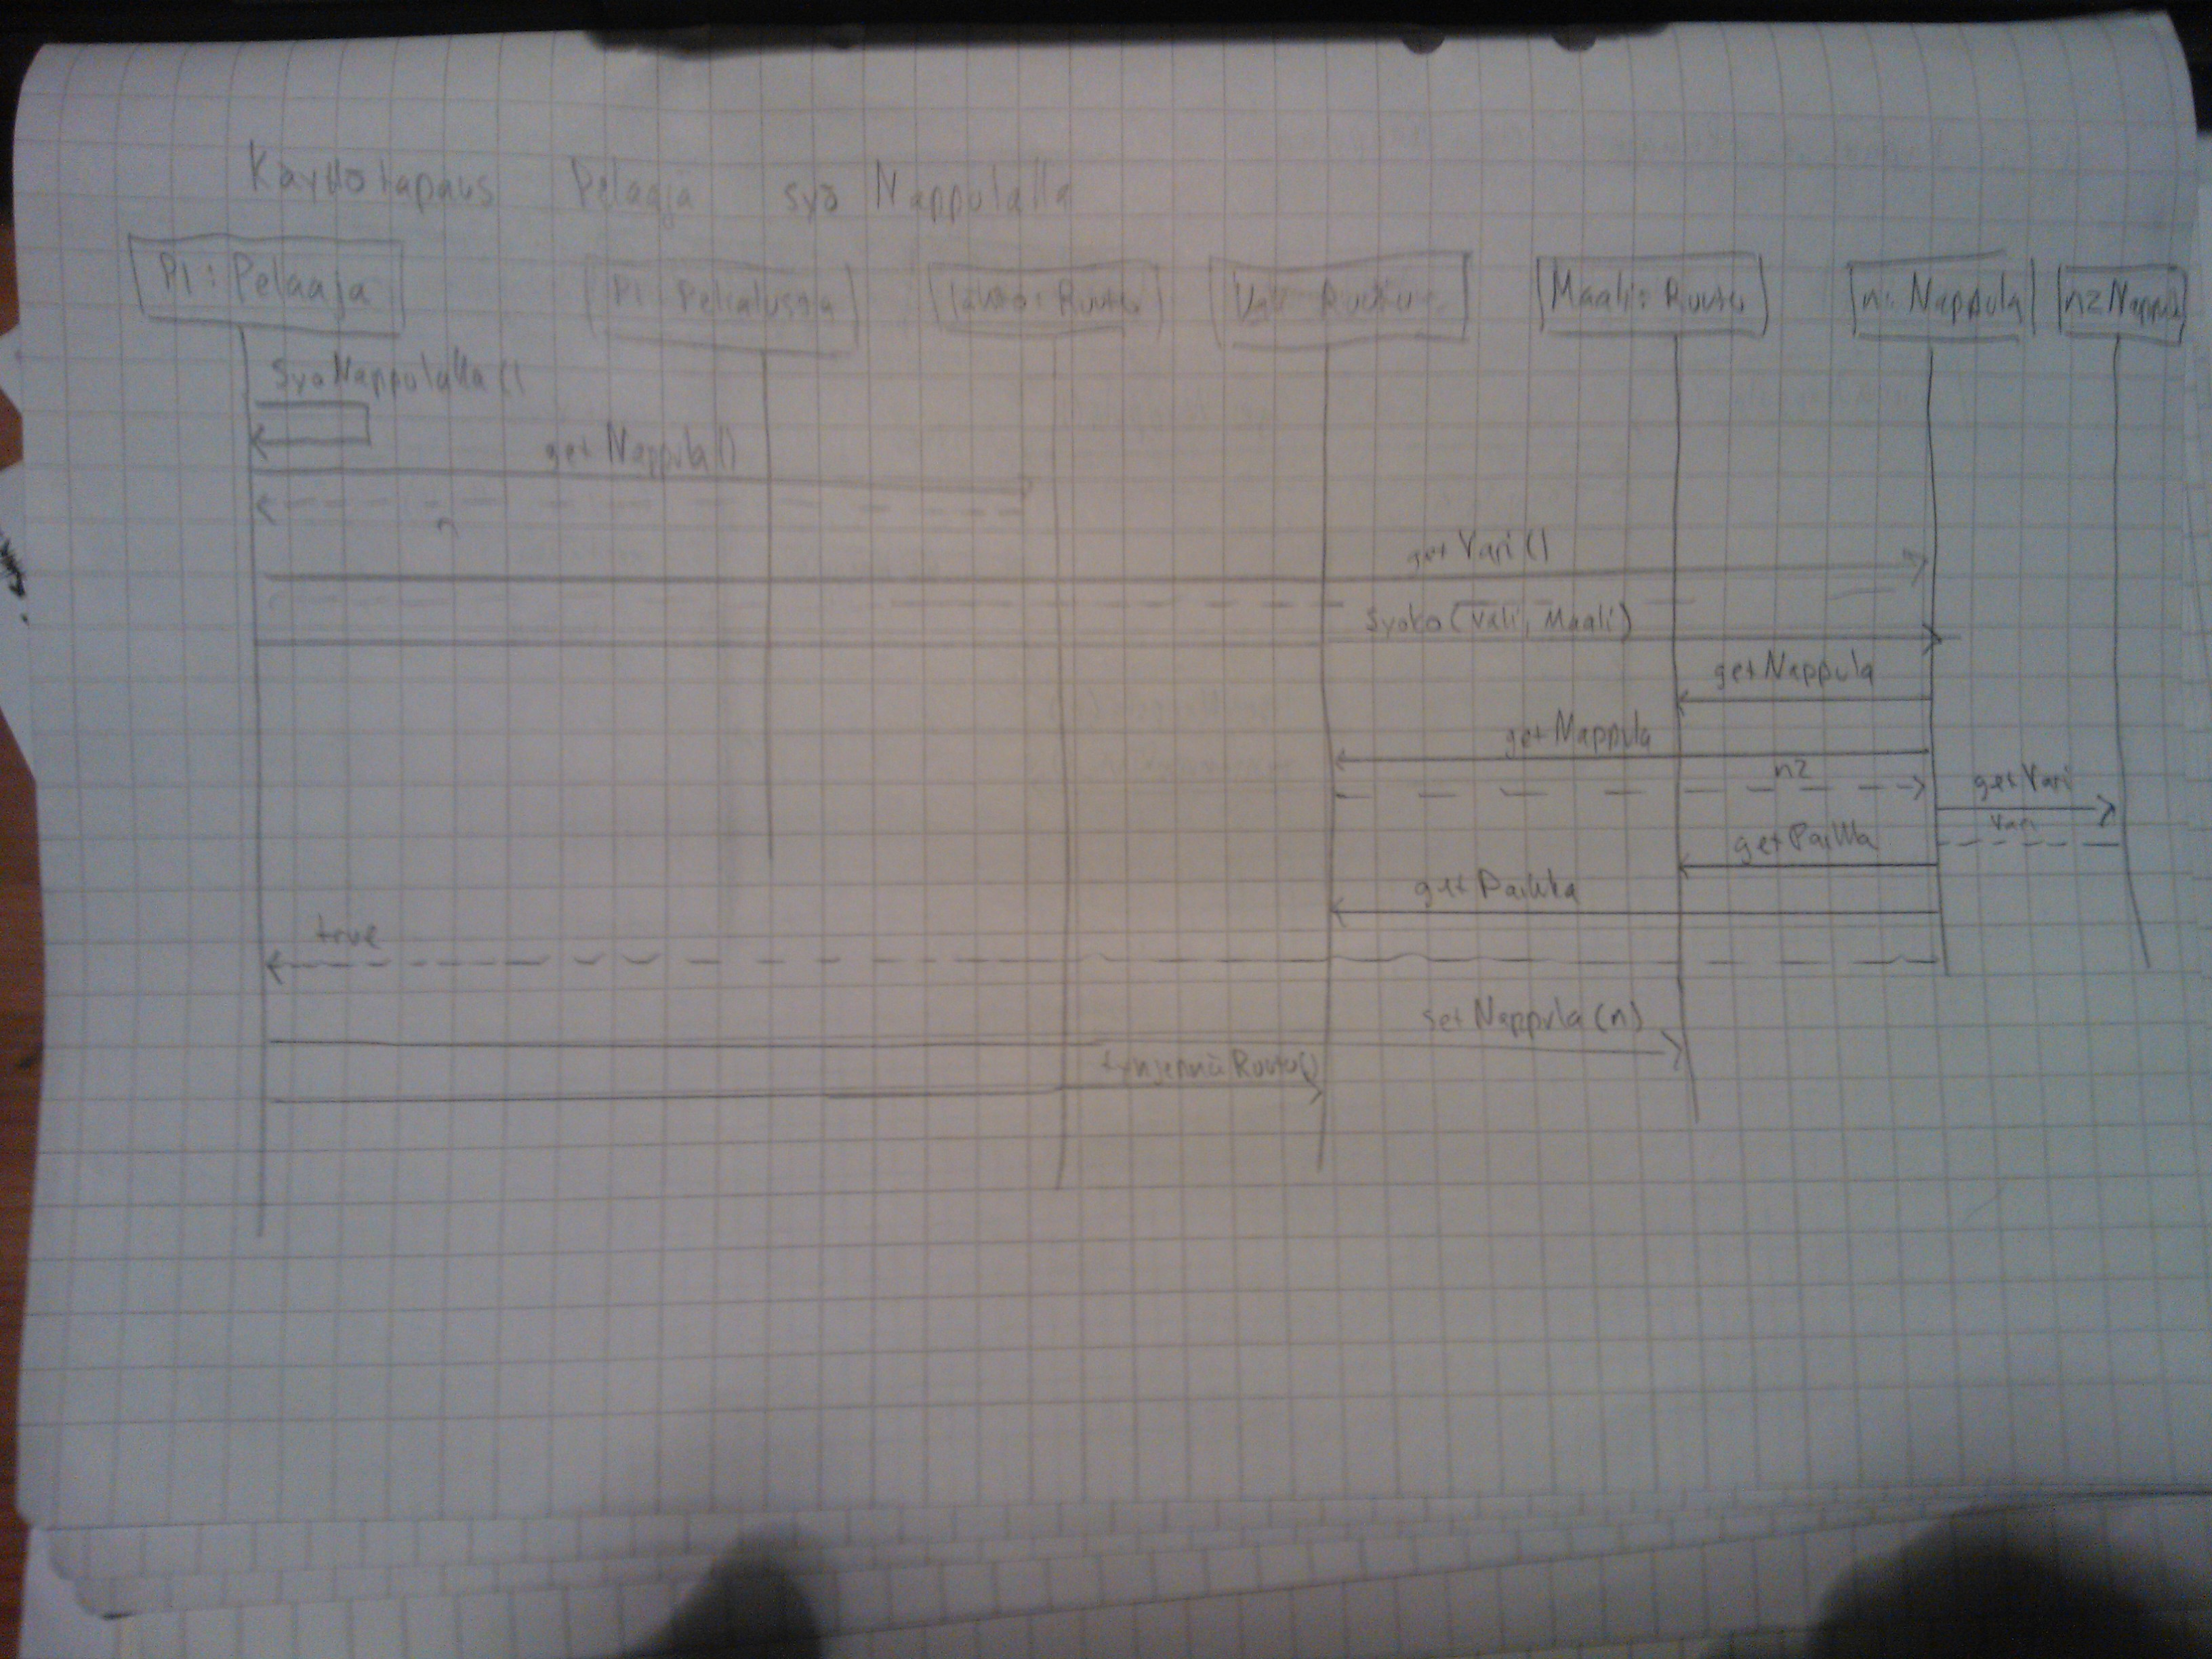 Käyttötapaus Pelaaja syö Nappulalla
P1: Pelaaja
P1: Pelialusta
Lähtö: Ruutu
Väli Ruutu
Maali: Ruutu
n: Nappula
n2 Nappula
SyöNappulalla()
getNappula()
n
getVari()
Syökö(väli, Maali)
getNappula
getNappula
n2
getVari
Vari
getPaikka
getPaikka
true
setNappula(n)
tyhjennäRuutu()